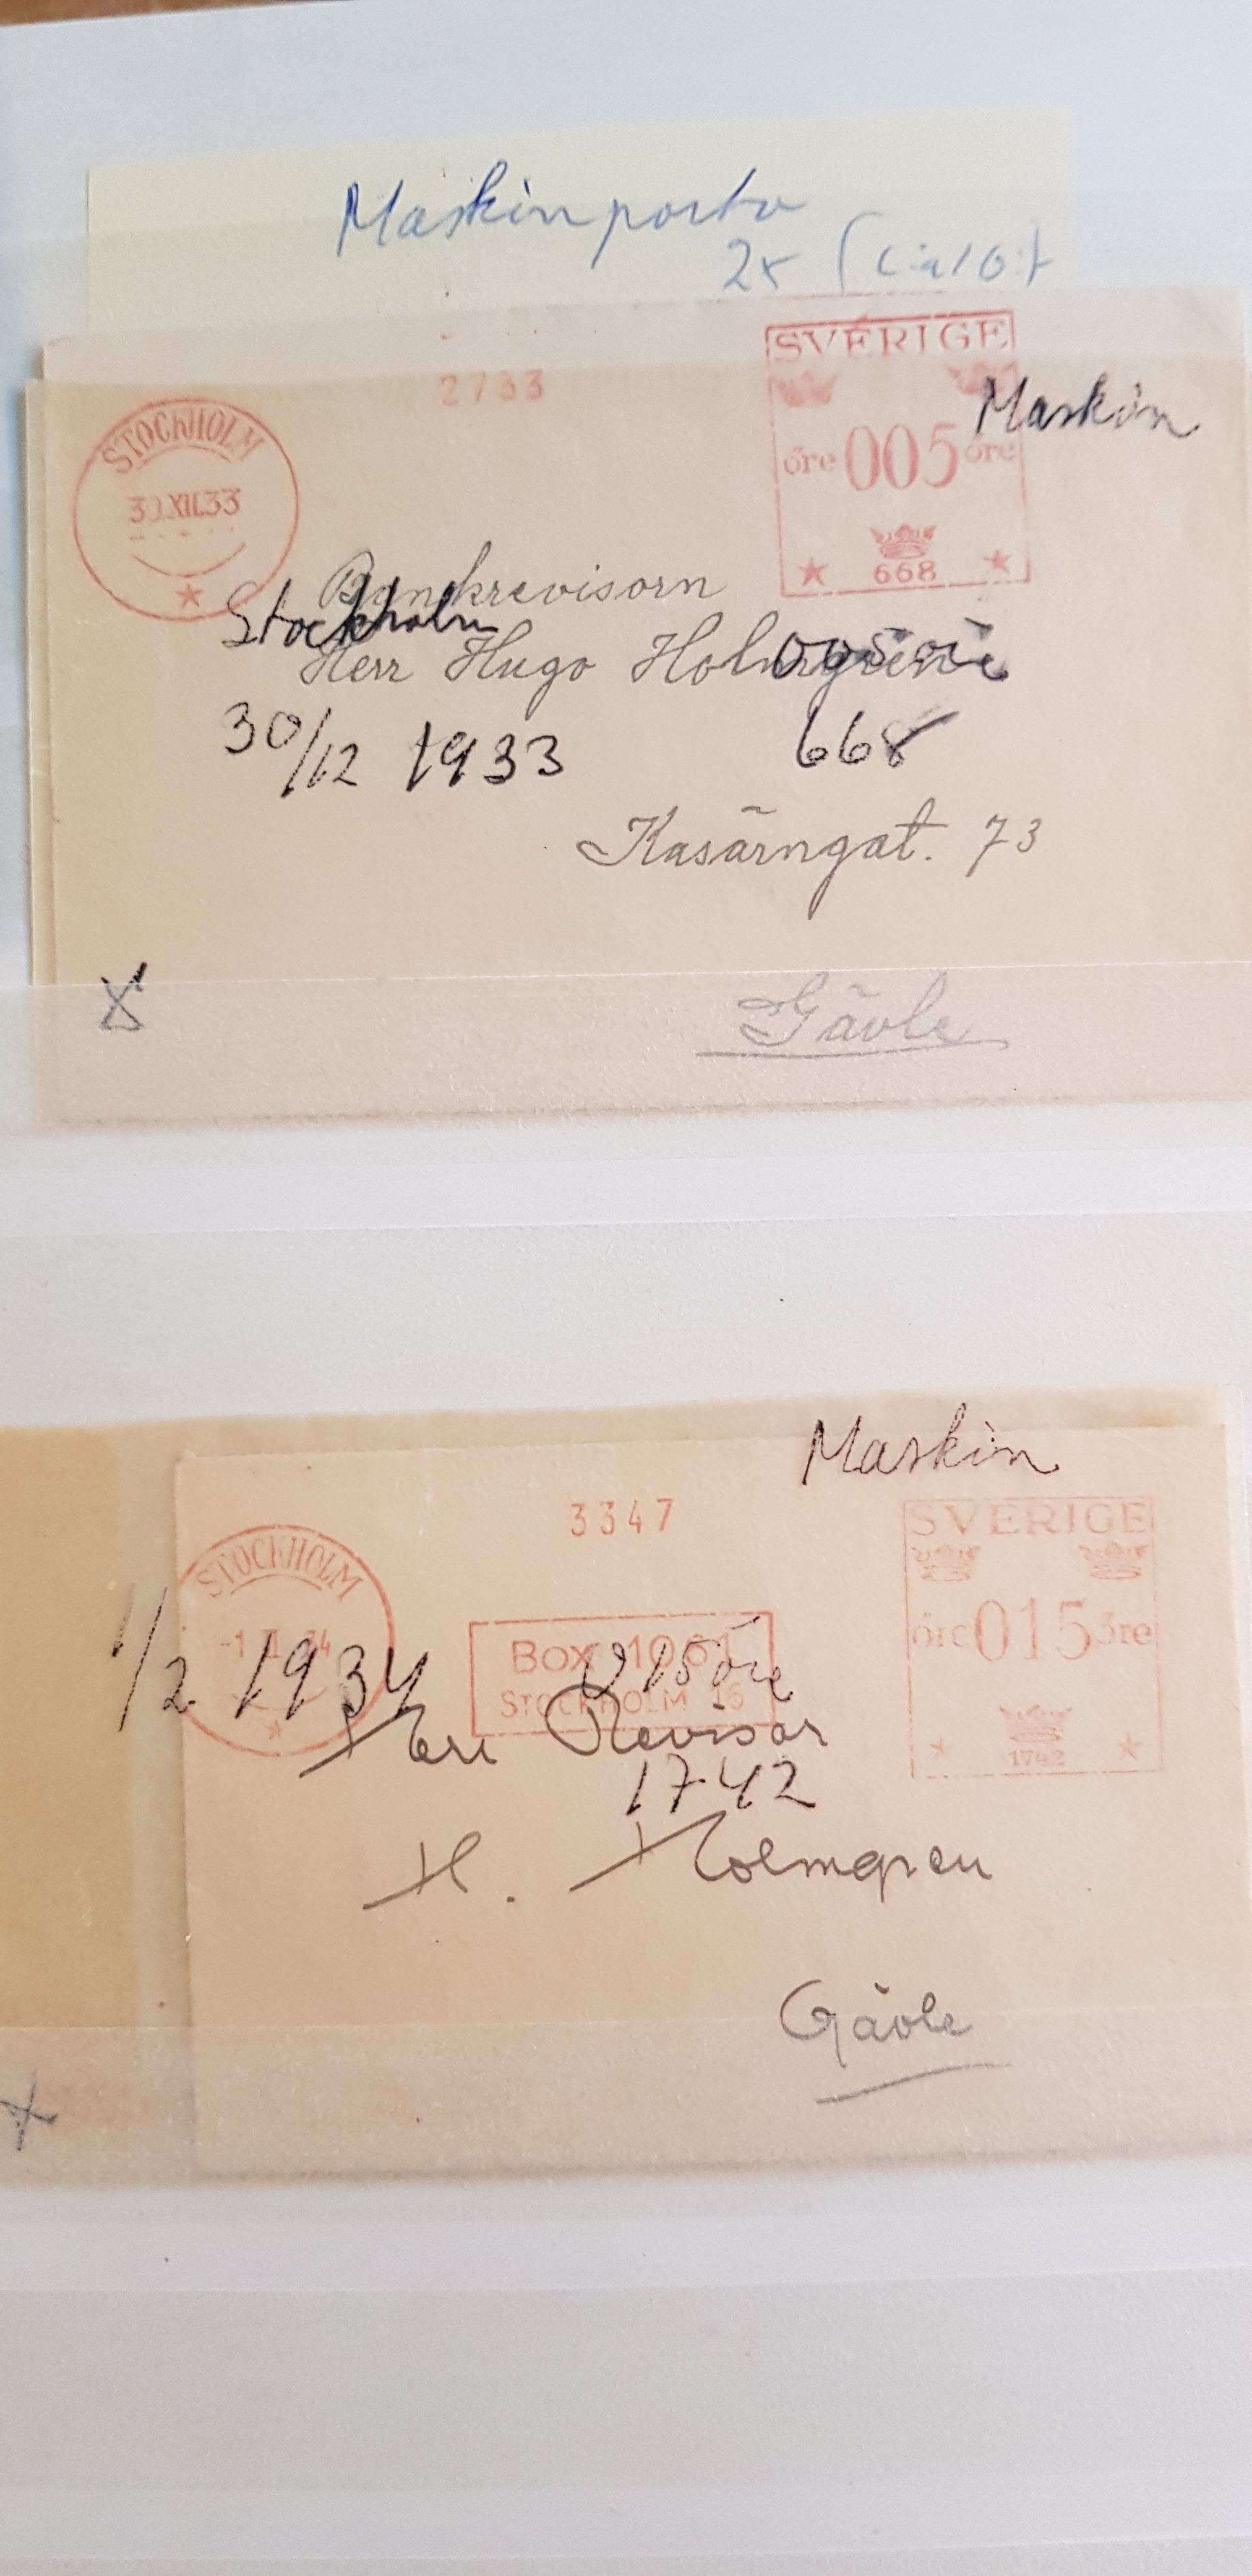 Maskinporto
2x
SVERIGE
2733
Maskin
STOCKHOLM
öre 005 öre
30.XII.33
668
Bankrevisorn
Stockholm
Herr Hugo Holmgren
30/12 1933
668
Kasärngat. 73
Gävle
Maskin
3347
SVERIGE
STOCKHOLM
öre 015 öre
Box 1061
015 öre
1/2 1934
STOCKHOLM 16
Herr Revisor
1742
1742
H. Holmgren
Gävle